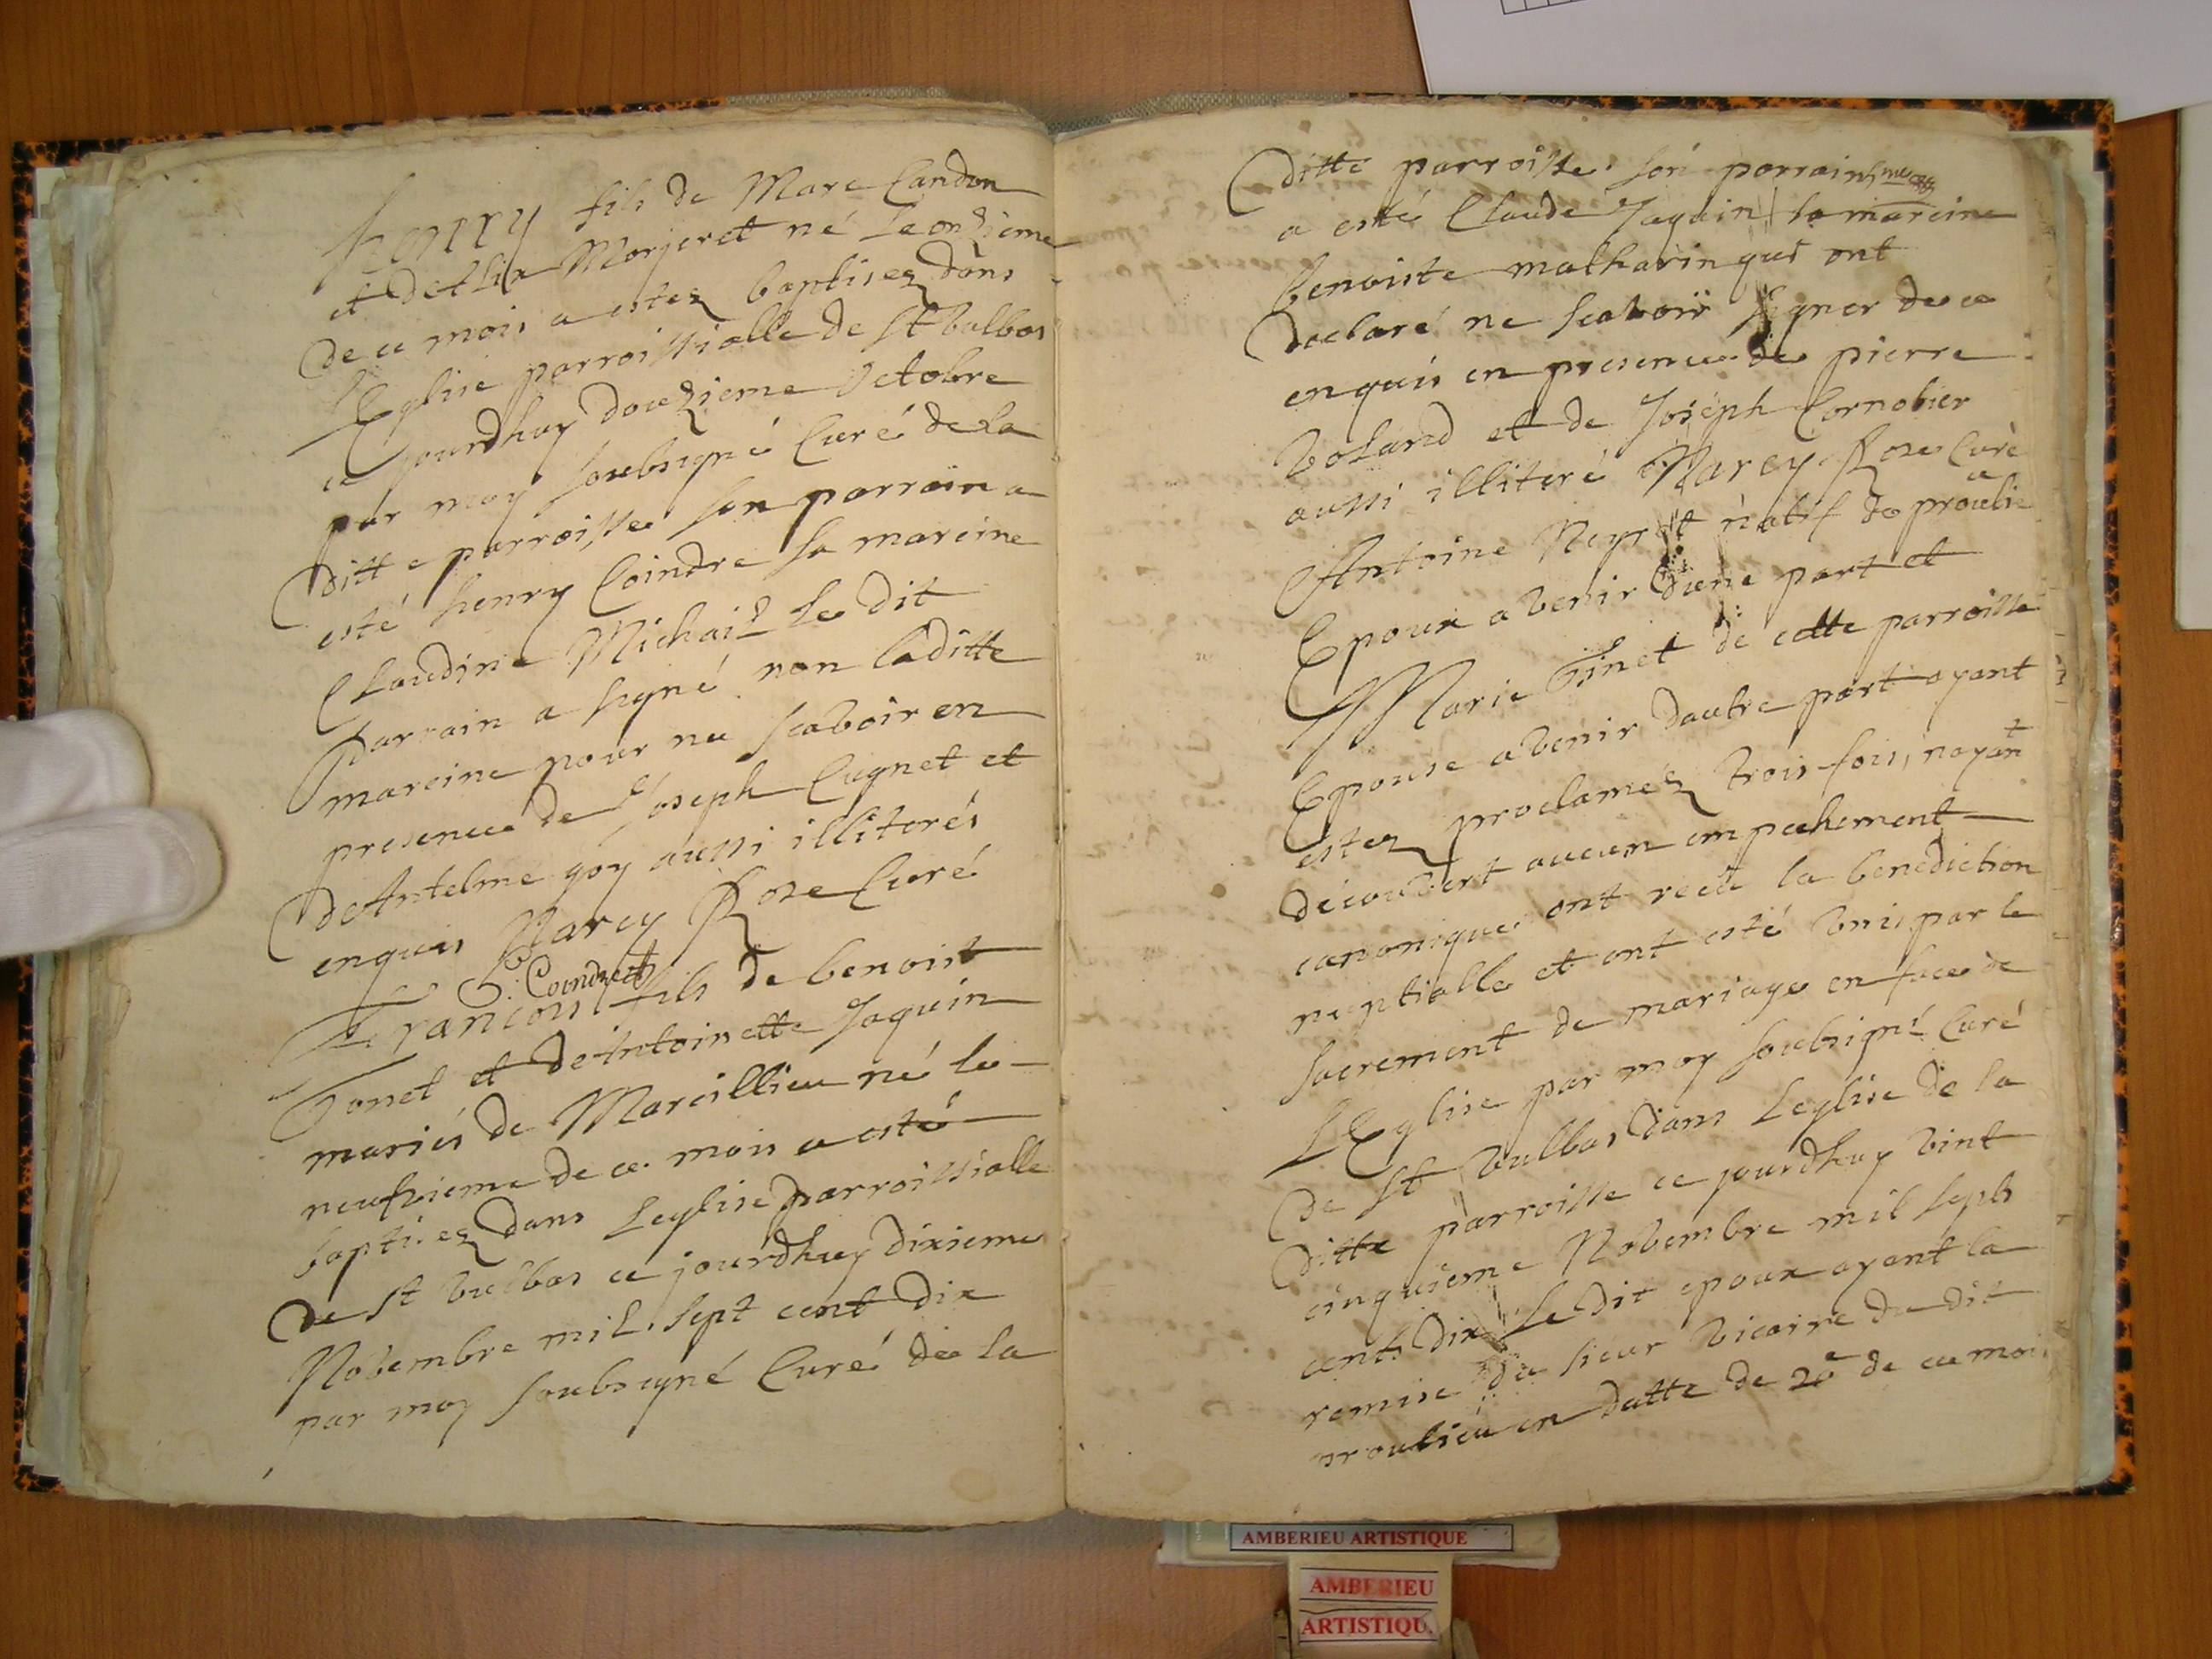 henry fils de Marc Candon
et dethia Morjeret né Le onzieme
de ce mois a estez baptisez dans
LEglise parroissialle de St Vulbas
ce jourdhuy douzieme Octobre
par moy soubsigné Curé de la
ditte parroisse son parrain a
esté henry Coindre sa mareine
Claudine Michaiz Le dit
Parrain a signé non laditte
mareine pour ne scavoir en
presence de Joseph Cugnet et
deAntelme goy aussi illiterés
enquis Marcy Roze Curé
Coindre
Francois fils de benoist
Tonet et deAntoinette Jaquin
mariés de Marcillieu né le
neufvieme de ce mois a esté
baptisez dans Leglise parroissialle
de St Vulbas ce jourdhuy dixieme
Novembre mil sept cent dix
par moy soubsigné Curé de la
ditte parroisse son parrain
a esté Claude Jaquin la mareine
benoiste matharin qui ont
declaré ne scavoir signer de ce
enquis en presence de pierre
Voland et de Joseph Cornobier
aussi illiteré Marcy Roze Curé
Antoine Neyret natif de proulieu
Epoux a venir dune part et
Marie Tinet de cette parroisse
Epouse a venir dautre part ayant
estez proclaméz trois fois, nayant
decouvert aucun empechement
canonique ont recu la benediction
nuptialle et ont esté unis par le
sacrement de mariage en face de
LEglise par moy soubsigné Curé
de St Vulbas dans Leglise de la
ditte parroisse ce jourdhuy vint
cinquieme Novembre mil sept
cents dix Le dit epoux ayant la
remise du sieur Vicaire du dit
proulieu en datte de 20e de ce mois
AMBERIEU ARTISTIQUE
AMBERIEU
ARTISTIQU